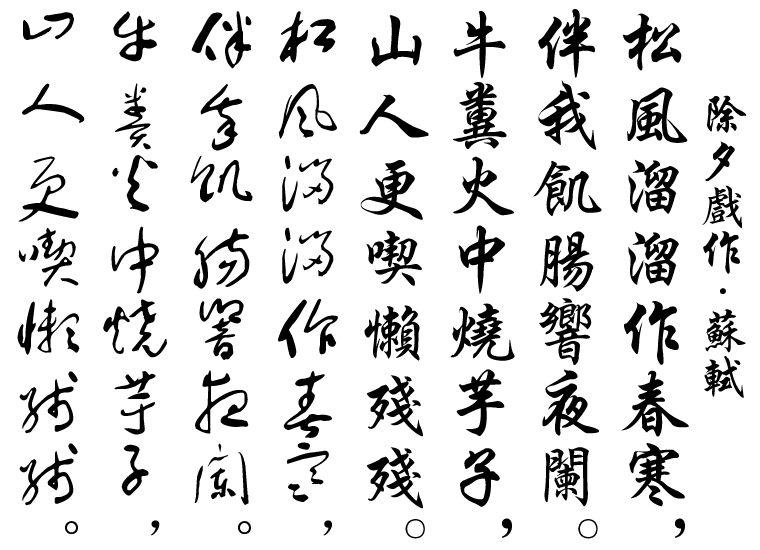 除夕戲作·蘇軾
松風溜溜作春寒，
伴我飢腸響夜闌。
牛糞火中燒芋子，
山人更喫懶殘殘。
松風溜溜作春寒，
伴我飢腸響夜闌。
牛糞火中燒芋子，
山人更喫懶殘殘。